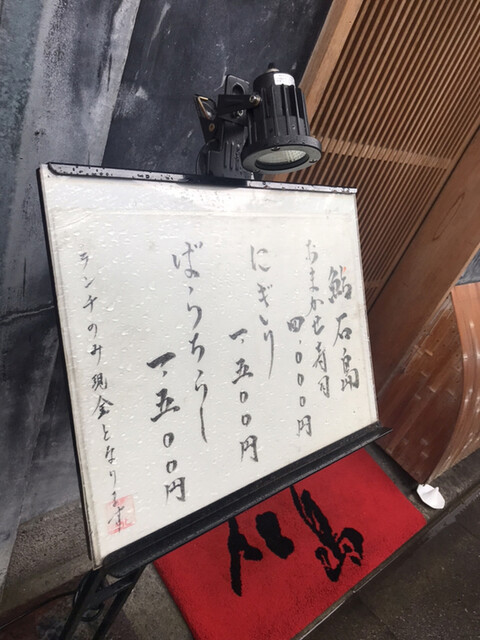 鮨石島
おまかせ寿司
四、〇〇〇円
にぎり
一、五〇〇円
ばらちらし
一、五〇〇円
ランチのみ現金となります
石島